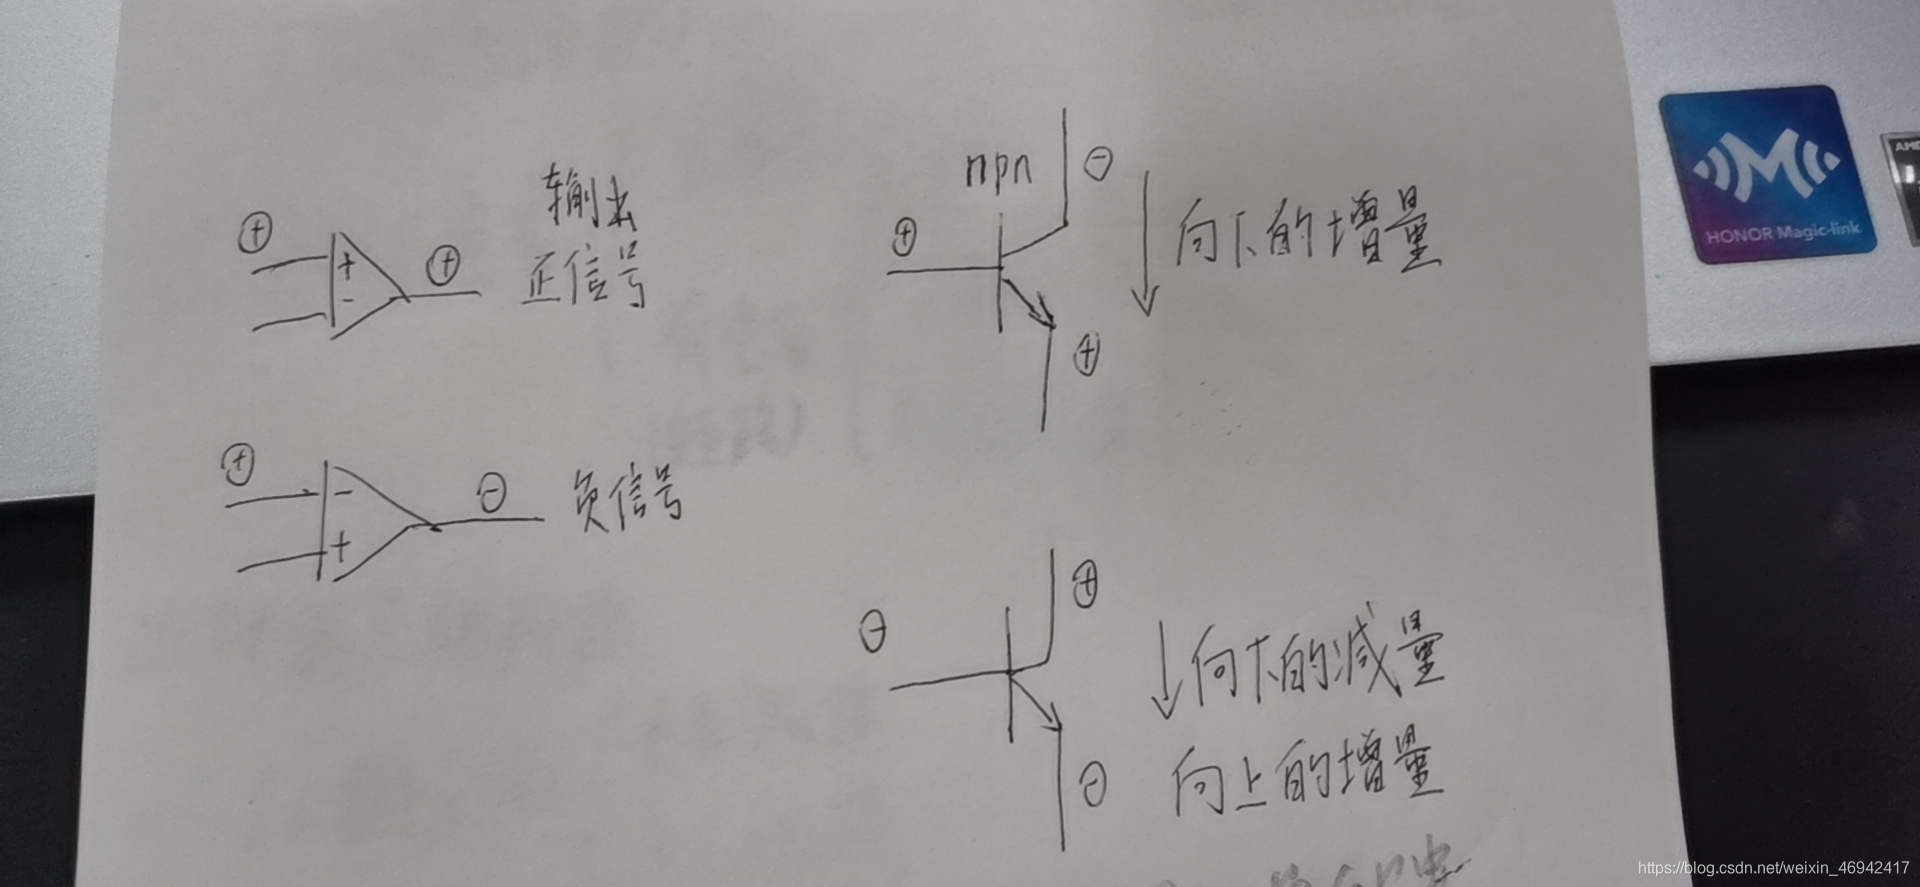 输出
正信号
⊕
+
-
⊕
⊕
-
+
⊖
负信号
npn
⊖
⊕
⊕
↓向下的增量
⊖
⊕
⊖
↓向下的减量
向上的增量
HONOR Magic-link
AMD
https://blog.csdn.net/weixin_46942417